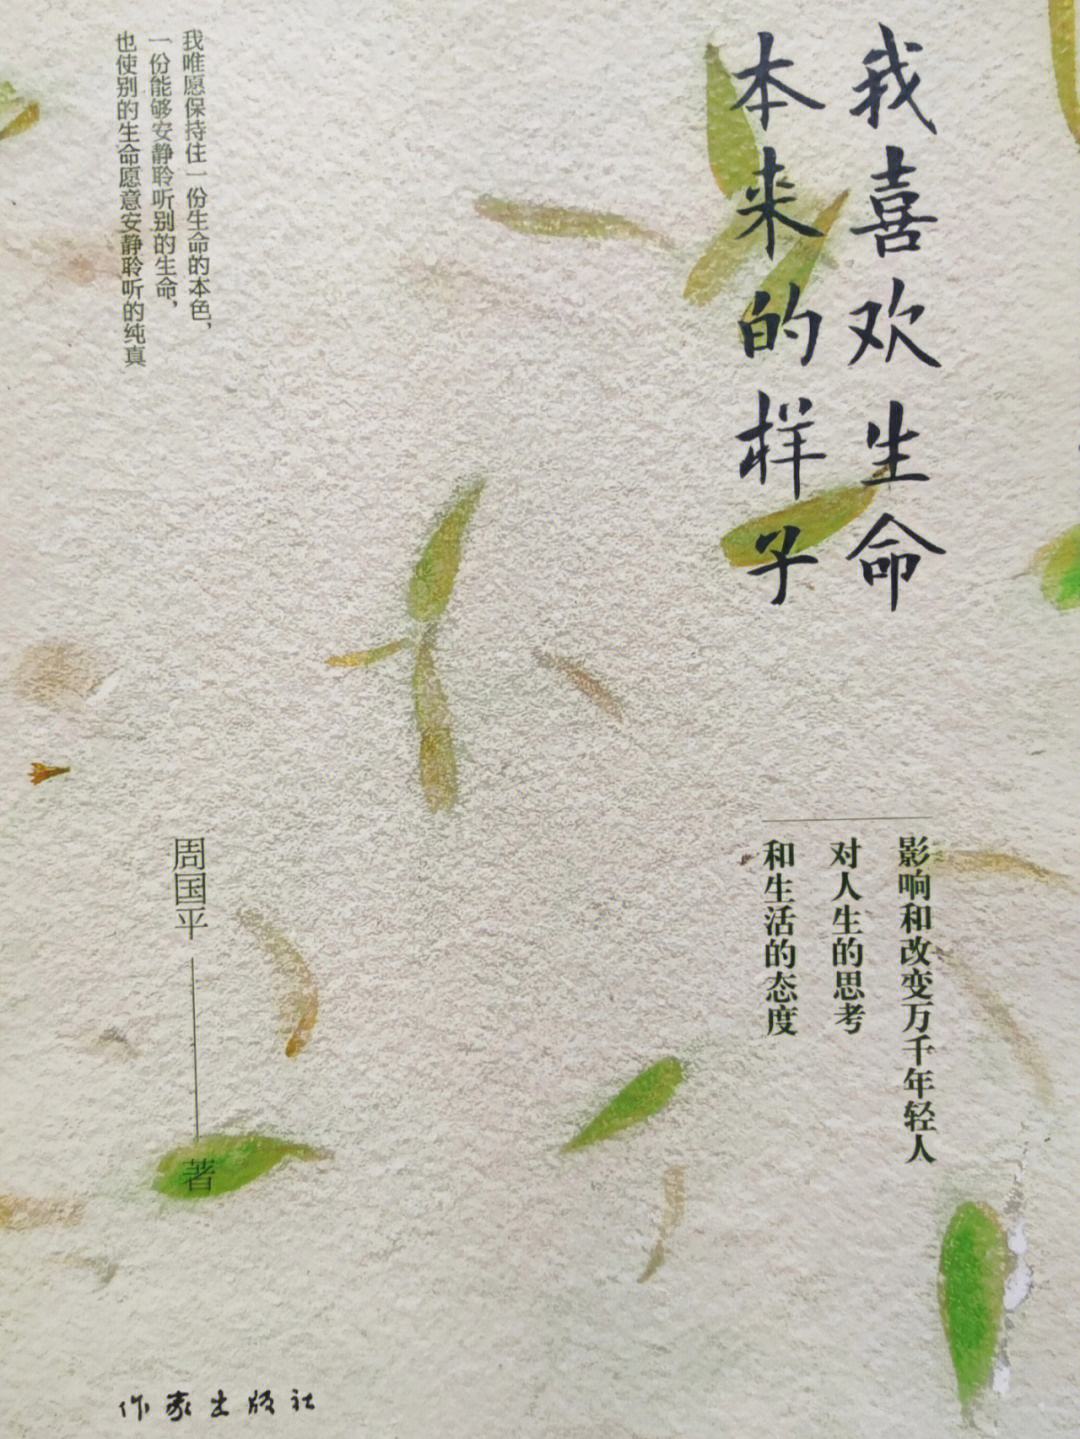 我喜欢生命
本来的样子
影响和改变万千年轻人
对人生的思考
和生活的态度
我唯愿保持住一份生命的本色，
一份能够安静聆听别的生命，
也使别的生命愿意安静聆听的纯真
周国平 著
作家出版社